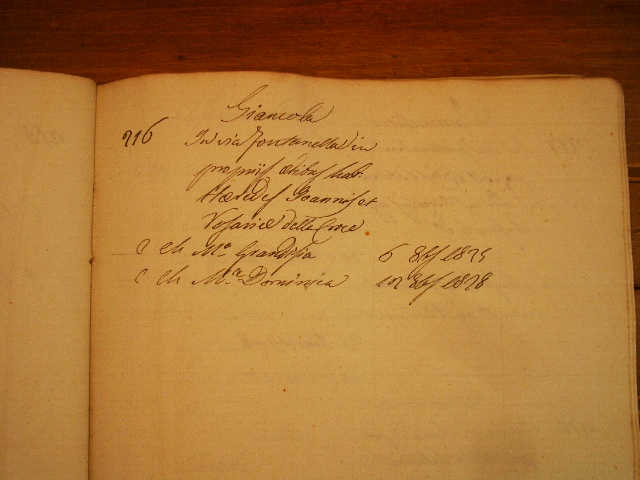 Giancola
216 In via Fontanella in
proprijs ædibus hab.
Hæredes Joannis et
Rosariæ della Croce
c ch M.a Grandisia 6 8bris 1825
c ch M.a Dominica 8bris 1828